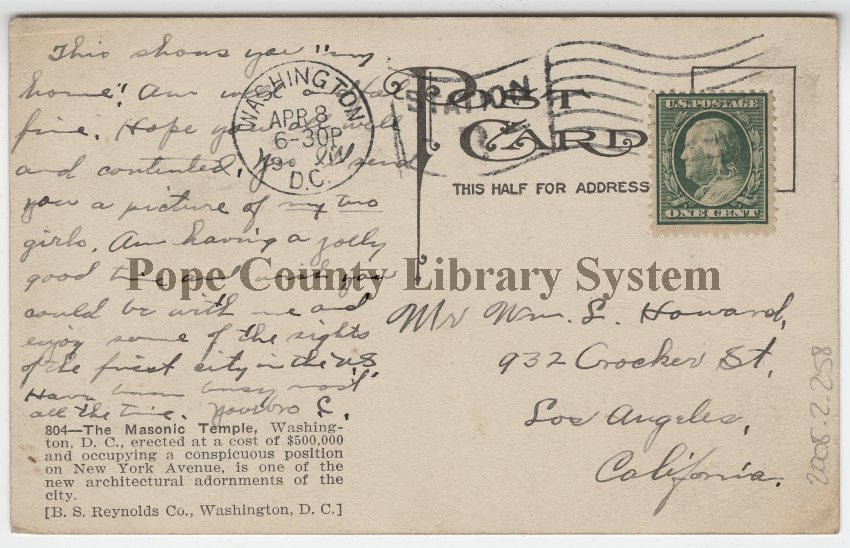 This shows you "my
home". Am well and
fine. Hope you are well
and contented. Yes I'll send
you a picture of my two
girls. Am having a jolly
good time and wish you
could be with me and
enjoy some of the sights
of the first city in the U.S.
Have been busy most
all the time. Your bro C.
804—The Masonic Temple, Washing-
ton, D. C., erected at a cost of $500,000
and occupying a conspicuous position
on New York Avenue, is one of the
new architectural adornments of the
city.
[B. S. Reynolds Co., Washington, D. C.]
WASHINGTON
APR 8
6-30P
19
D.C.
STATION
POST
CARD
THIS HALF FOR ADDRESS
U.S. POSTAGE
ONE CENT
Pope County Library System
Mr Wm. L. Howard,
932 Crocker St,
Los Angeles,
California.
2008.2.258